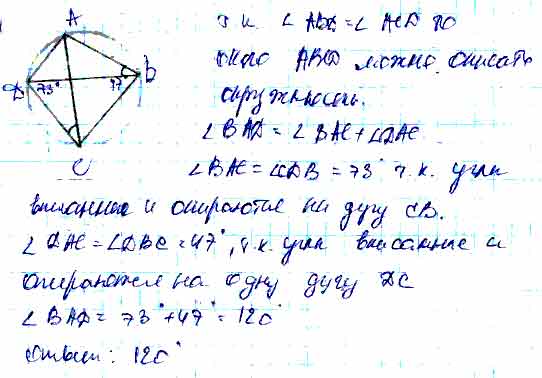 A
D 73° 47 B
C
т.к. ∠ABD = ∠ACD то
около ABCD можно описать
окружность.
∠BAD = ∠BAC + ∠DAC
∠BAC = ∠CDB = 73° т.к. углы
вписанные и опираются на дугу CB.
∠DAC = ∠DBC = 47°, т.к. углы вписанные и
опираются на одну дугу DC
∠BAD = 73° + 47° = 120°
Ответ: 120°